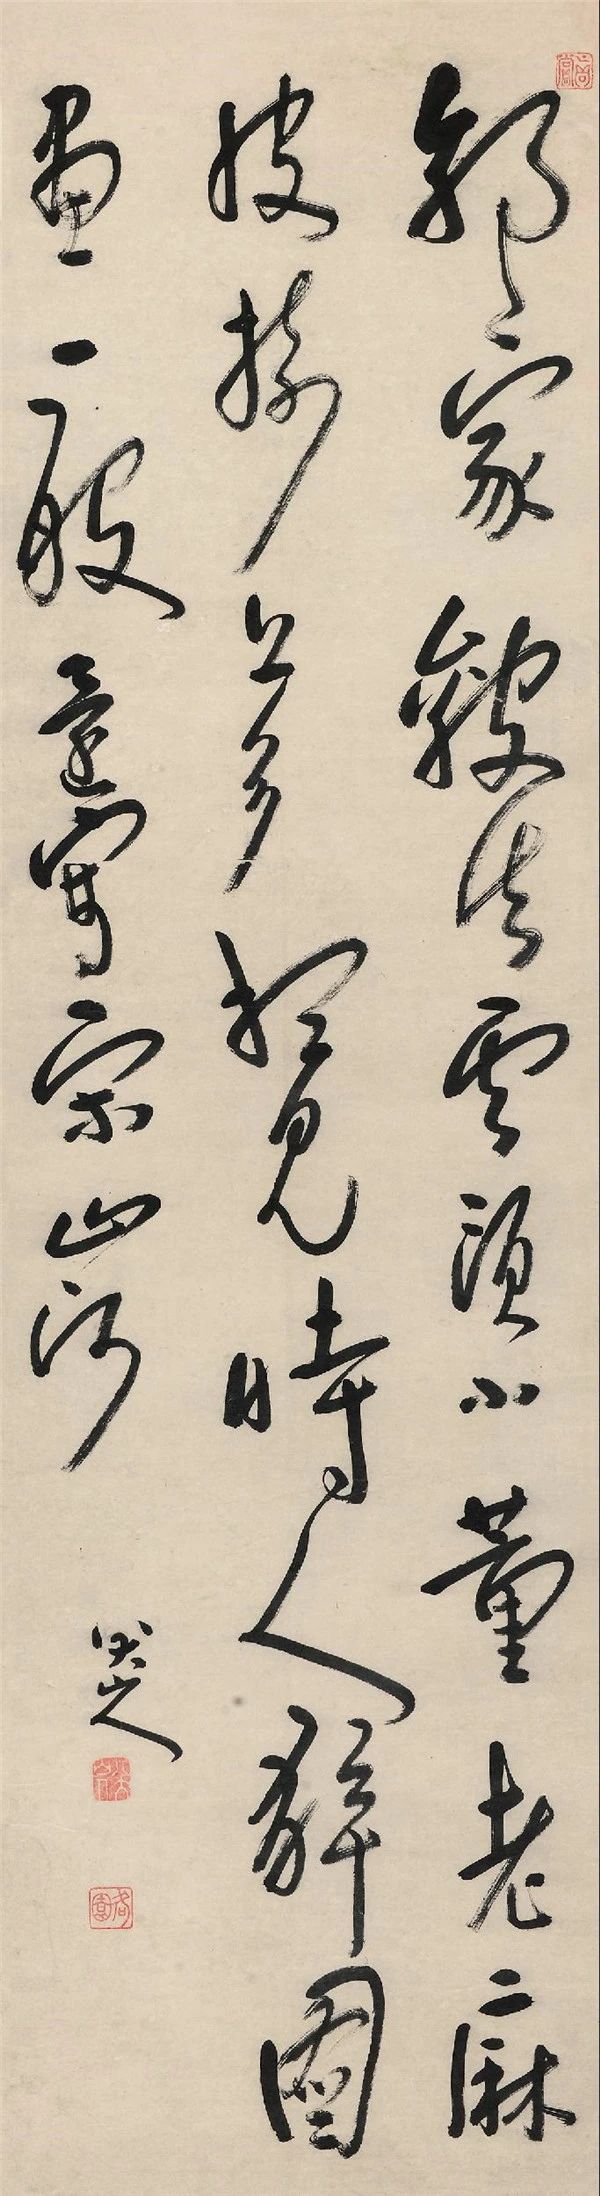 郭家皴法云頭小董老麻
皮樹上多想見時人解圖
畫一般還寫宋山河
八大山人